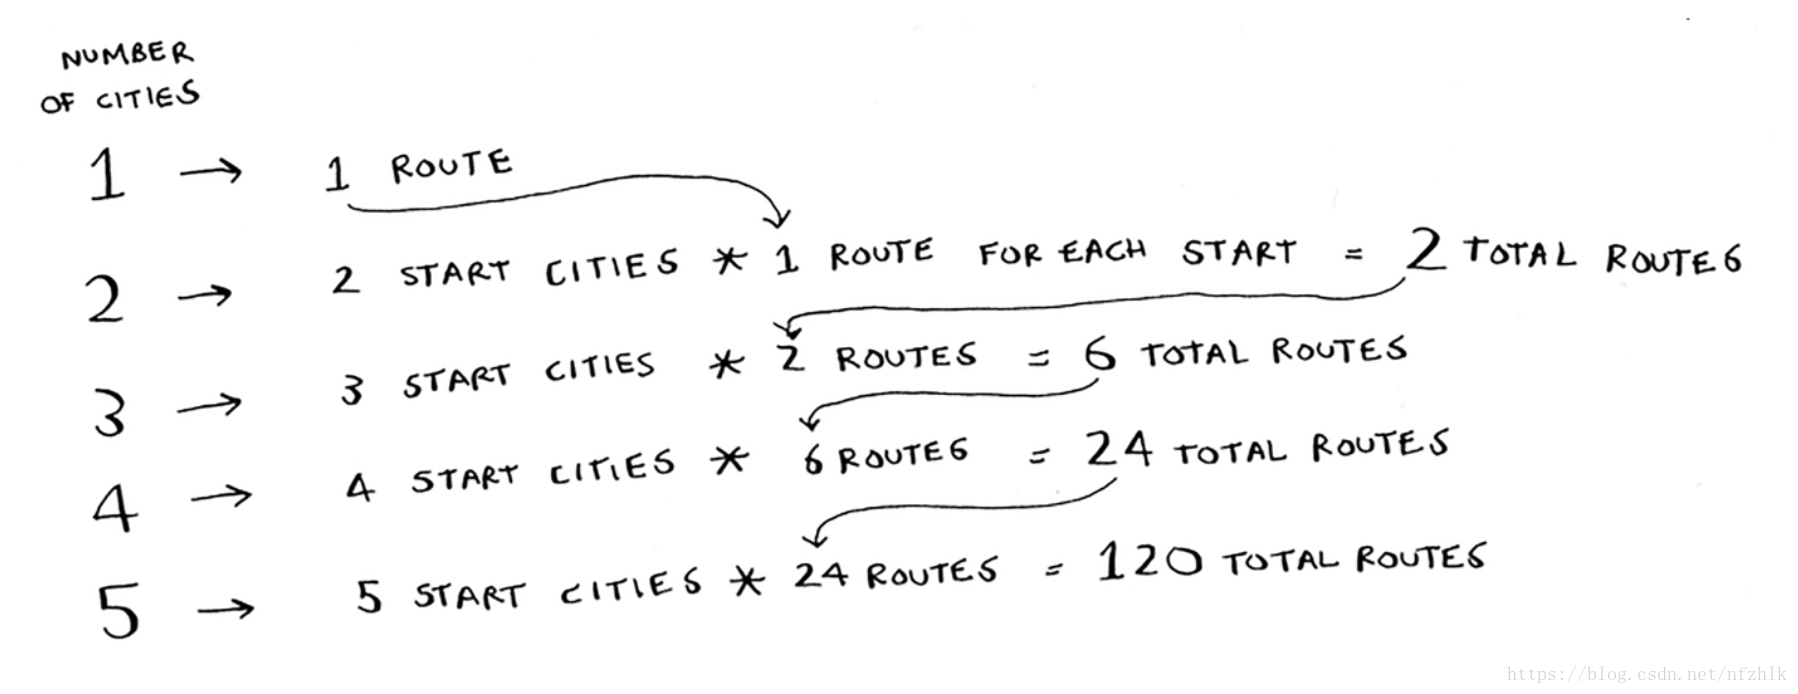 NUMBER
OF CITIES
1 → 1 ROUTE
2 → 2 START CITIES * 1 ROUTE FOR EACH START = 2 TOTAL ROUTES
3 → 3 START CITIES * 2 ROUTES = 6 TOTAL ROUTES
4 → 4 START CITIES * 6 ROUTES = 24 TOTAL ROUTES
5 → 5 START CITIES * 24 ROUTES = 120 TOTAL ROUTES
https://blog.csdn.net/nfzhlk